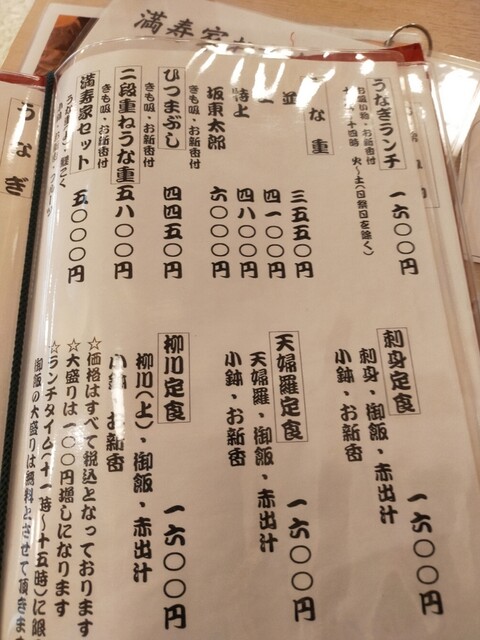 満寿家
うなぎ
うなぎランチ 一六〇〇円
お吸い物・お新香付
十四時 火～土(日祭日を除く)
な重
並 三五五〇円
上 四一〇〇円
特上 四八〇〇円
坂東太郎 六〇〇〇円
ひつまぶし 四四五〇円
きも吸・お新香付
きも吸・お新香付
二段重ねうな重 五八〇〇円
きも吸・お新香付
満寿家セット 五〇〇〇円
刺身定食 一六〇〇円
刺身・御飯・赤出汁
小鉢・お新香
天婦羅定食 一六〇〇円
天婦羅・御飯・赤出汁
小鉢・お新香
柳川定食 一六〇〇円
柳川(上)・御飯・赤出汁
小鉢 お新香
☆価格はすべて税込となっております
☆大盛りは一〇〇円増しになります
☆ランチタイム(十一時～十五時)に限
御飯の大盛りは無料とさせて頂きま